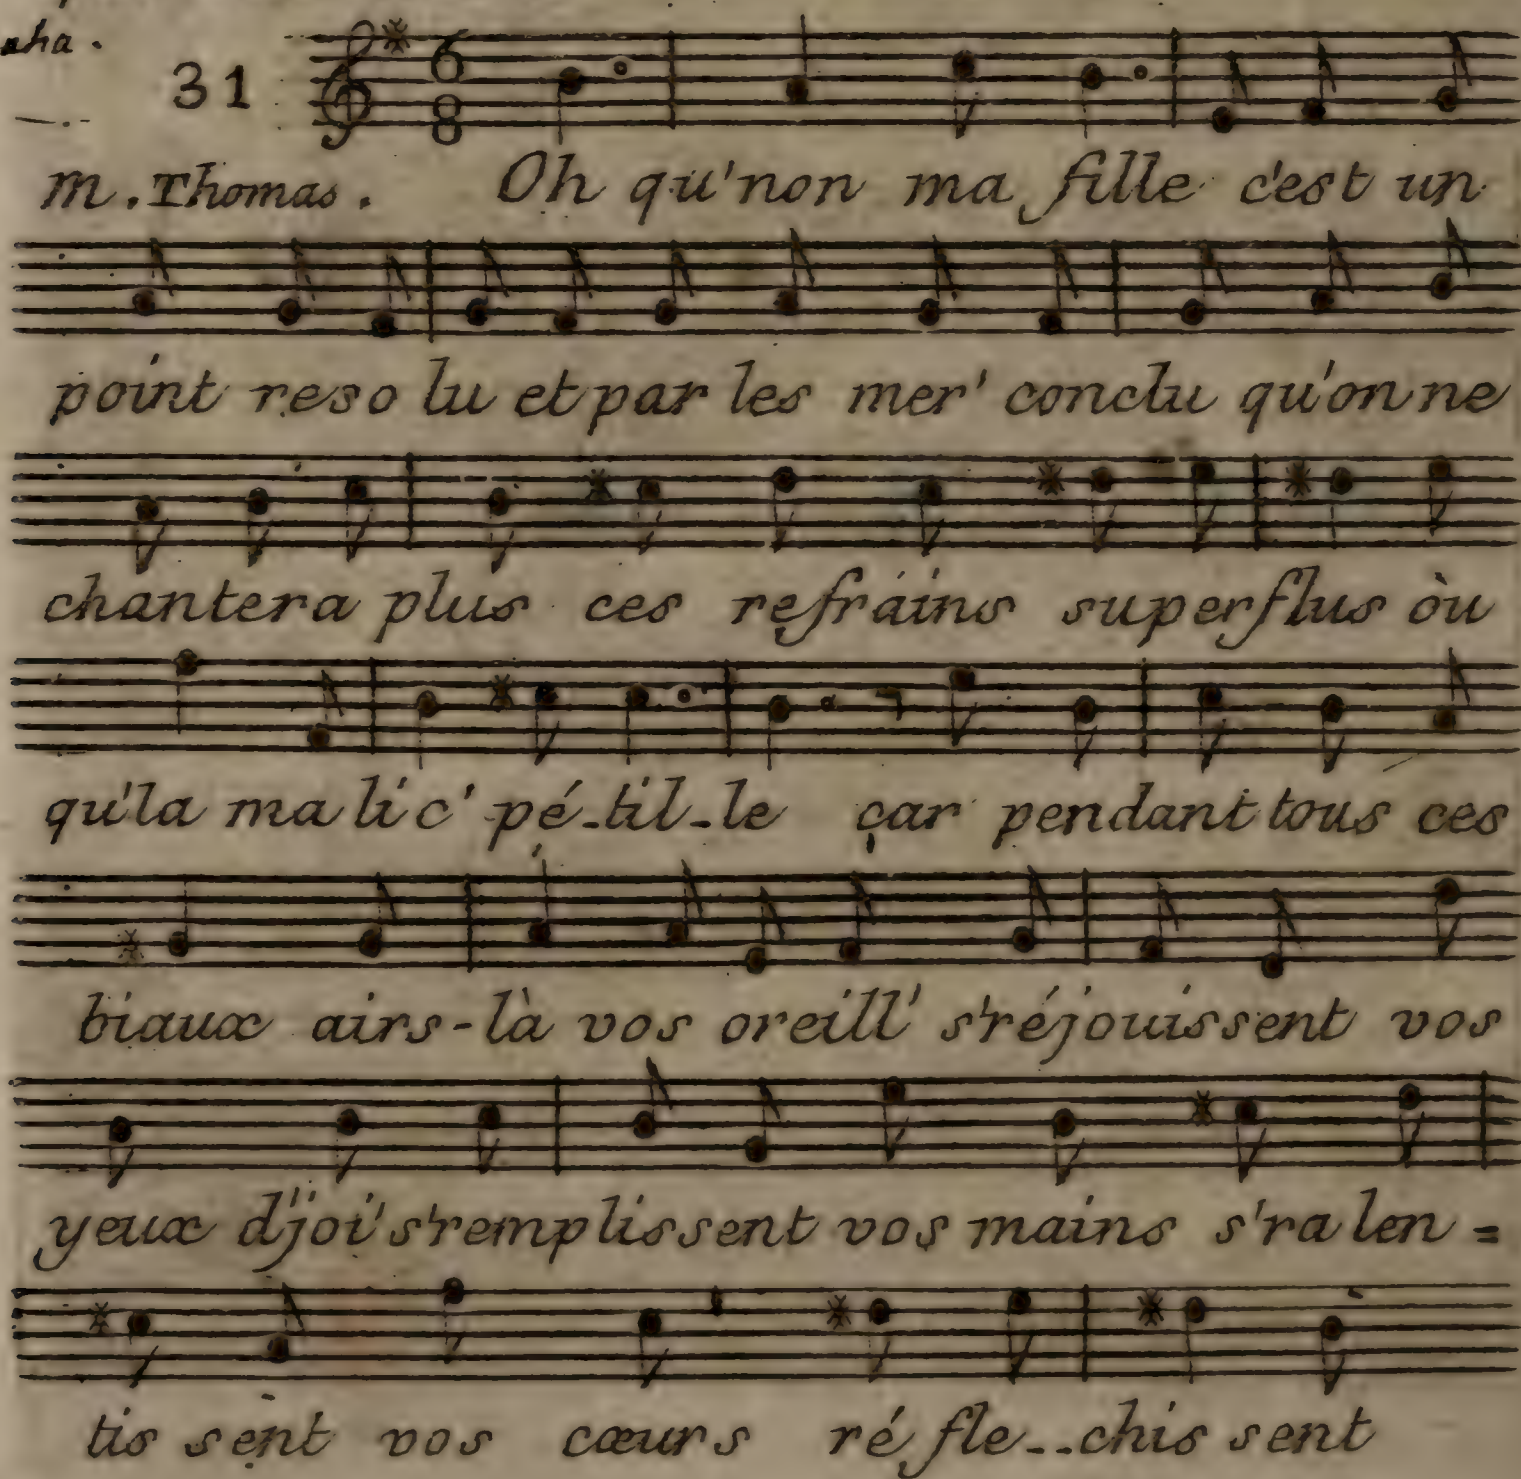 31
6
8
M. Thomas. Oh qu'non ma fille c'est un
point reso lu et par les mer' conclu qu'on ne
chantera plus ces refrains superflus òu
qu'la ma li c' pé-til-le car pendant tous ces
biaux airs-là vos oreill' s'réjouissent vos
yeux d'joi' s'remplissent vos mains s'ra len=
tis sent vos cœurs ré fle--chis sent